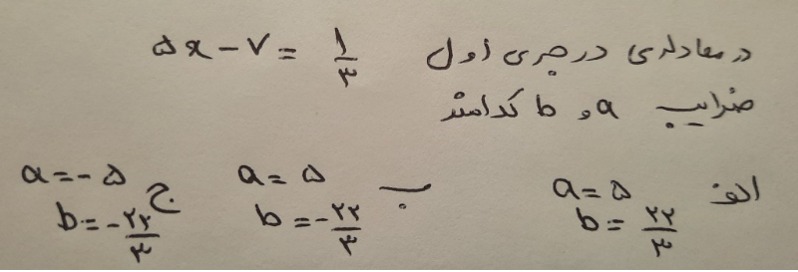 در معادله‌ی درجه‌ی اول ۵x − ۷ = ۱/۳
ضرایب a و b کدامند
الف a = ۵ b = ۲۲/۳
ب a = ۵ b = −۲۲/۳
ج a = −۵ b = −۲۲/۳